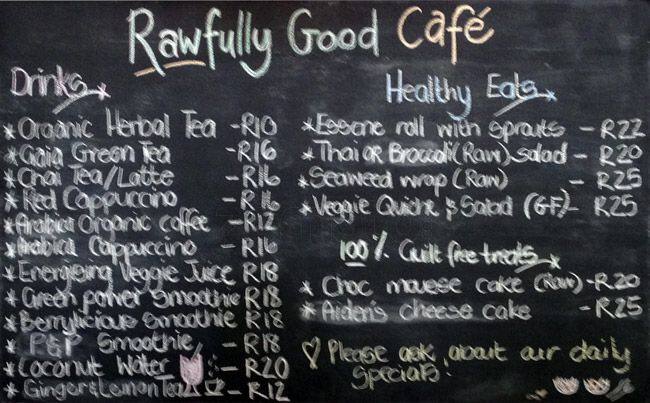 Rawfully Good Café
Drinks
* Organic Herbal Tea - R10
* Gaia Green Tea - R16
* Chai Tea/Latte - R16
* Red Cappuccino - R16
* Arabica Organic coffee - R12
* Arabica Cappuccino - R16
* Energising Veggie Juice R18
* Green power Smoothie R18
* Berrylicious Smoothie R18
* P&P Smoothie - R18
* Coconut Water - R20
* Ginger & Lemon Tea - R12
Healthy Eats
* Essene roll with sprouts - R22
* Thai OR Broccoli (Raw) Salad - R20
* Seaweed wrap (Raw) - R25
* Veggie Quiche & Salad (GF) - R25
100% Guilt free treats
* Choc mousse cake (Raw) - R20
* Aiden's cheese cake - R25
Please ask about our daily
specials!